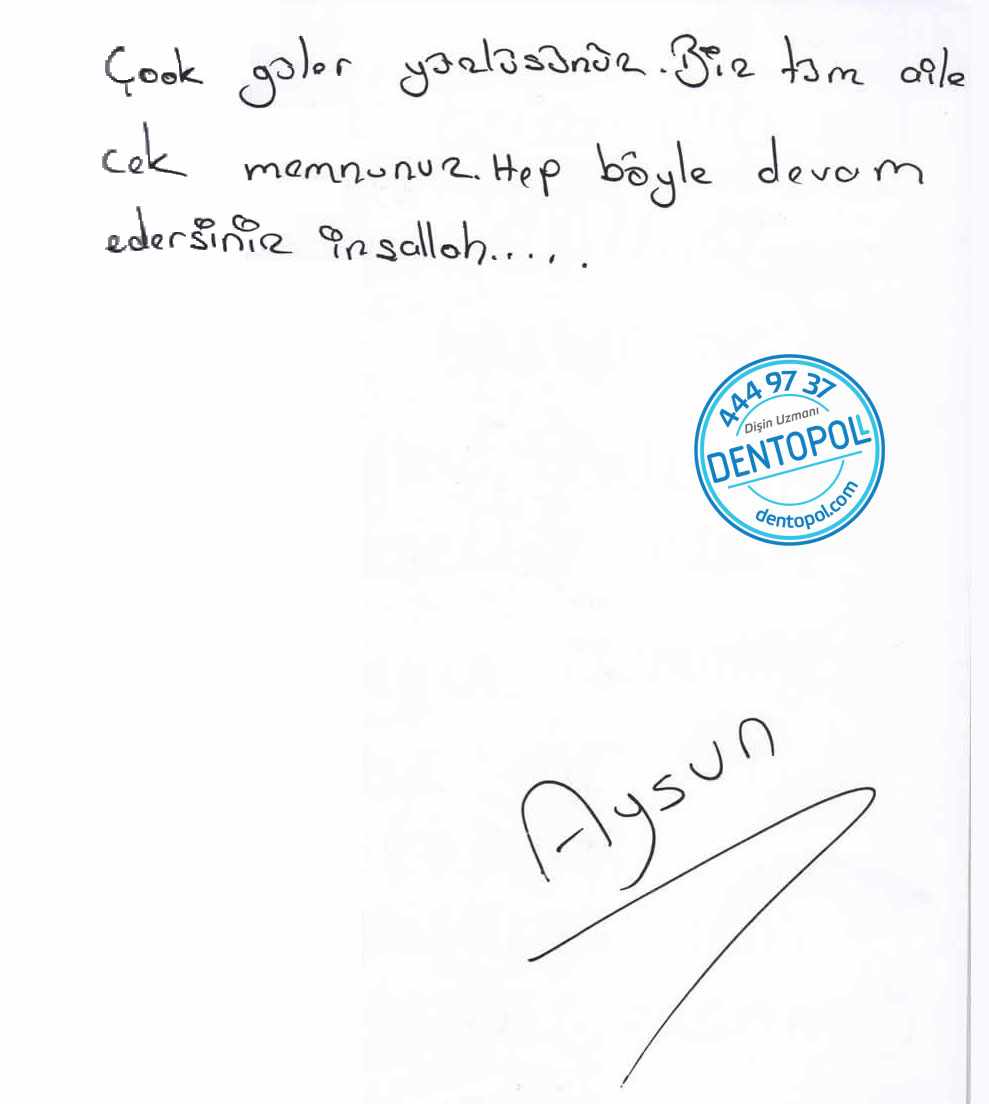 Çook güler yüzlüsünüz. Biz tüm aile
cek memnunuz. Hep böyle devam
edersiniz inşallah.....
444 97 37
Dişin Uzmanı
DENTOPOLL
dentopol.com
Aysun